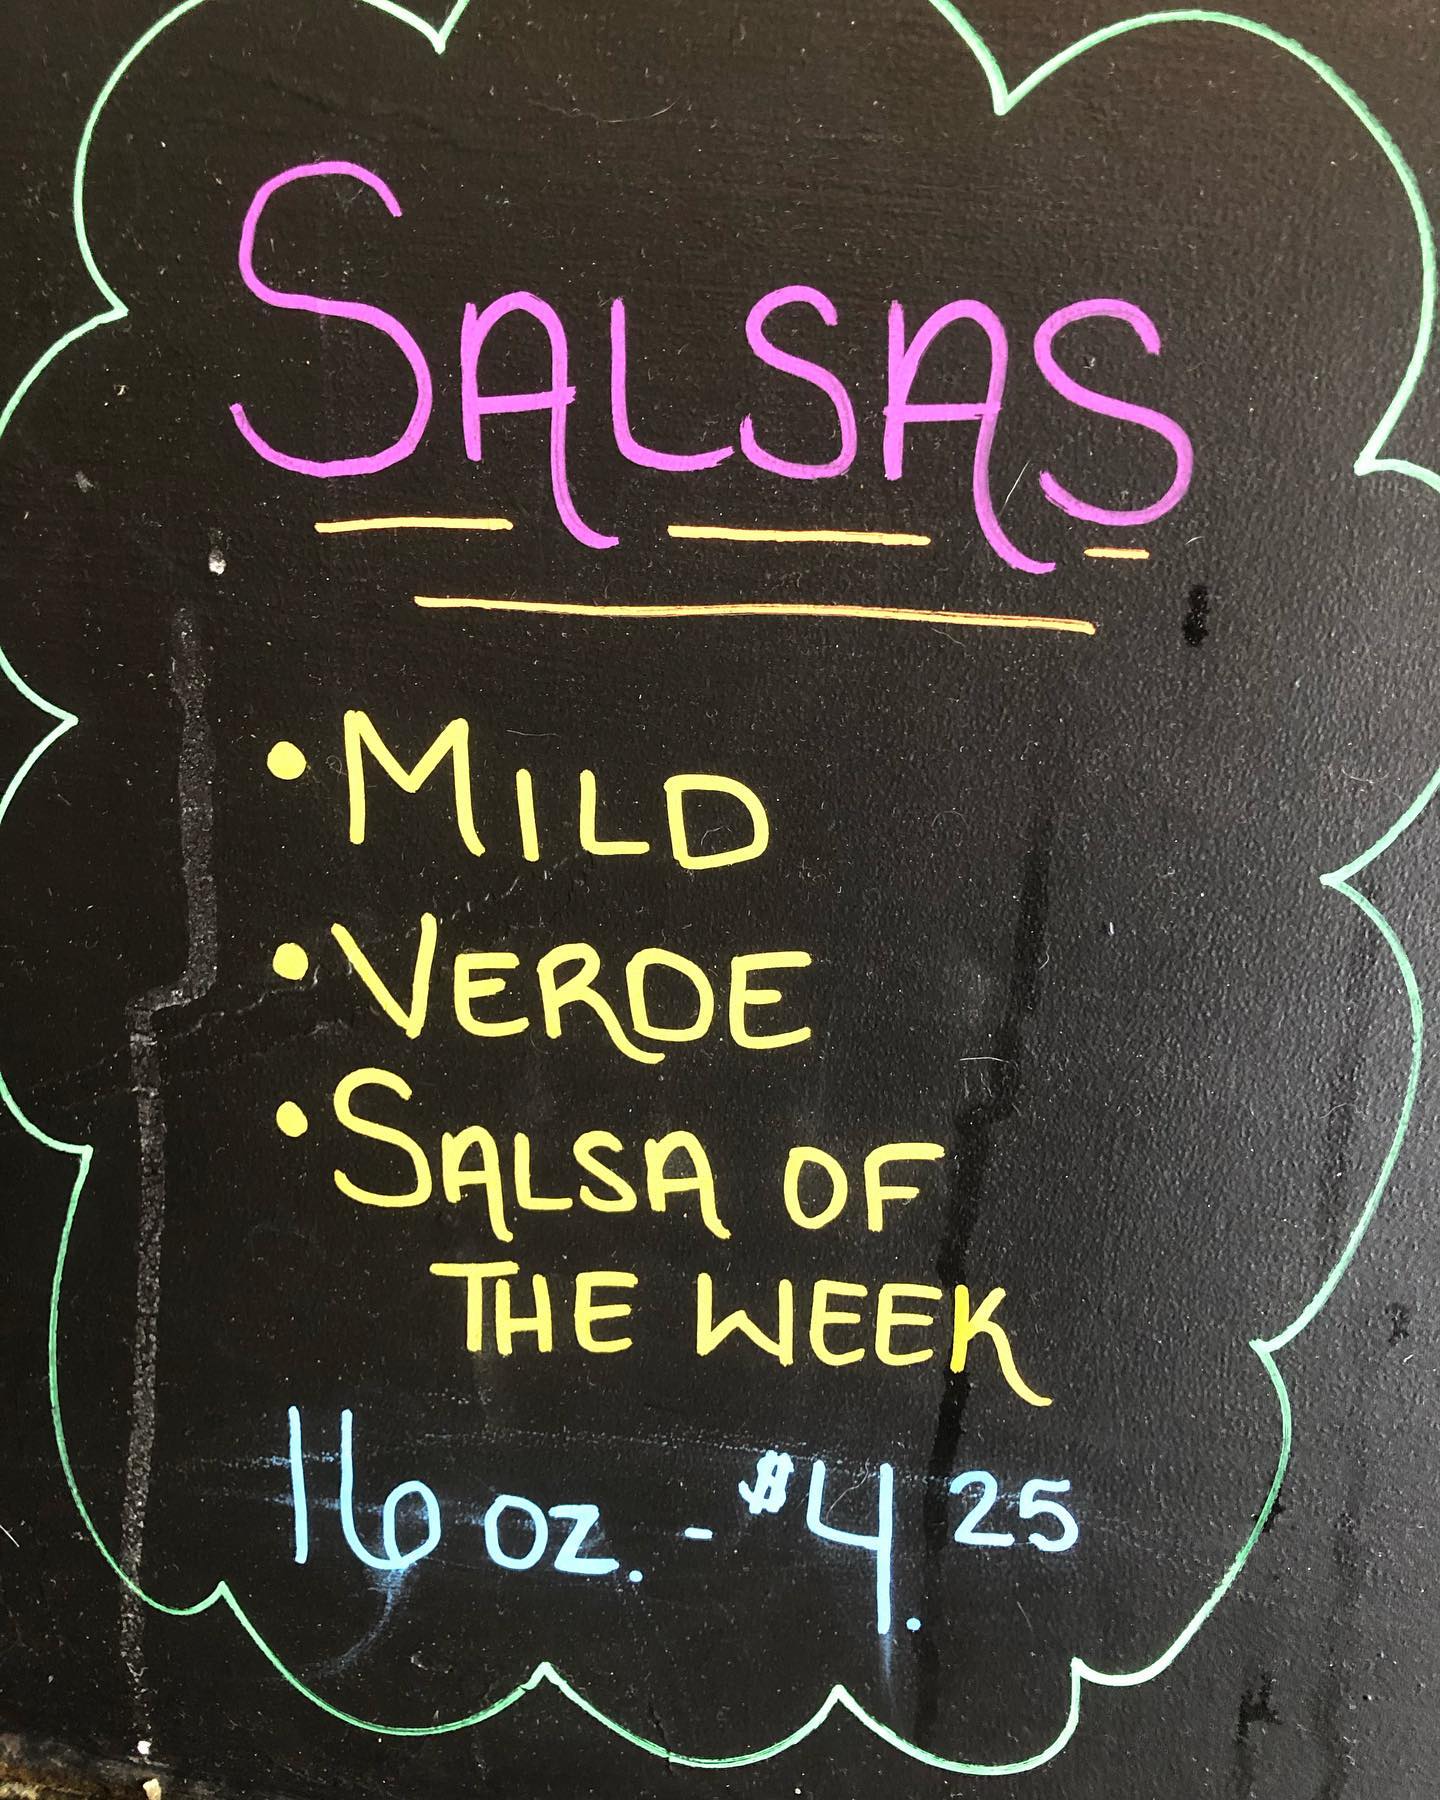 SALSAS
• MILD
• VERDE
• SALSA OF
THE WEEK
16 oz. - $4.25